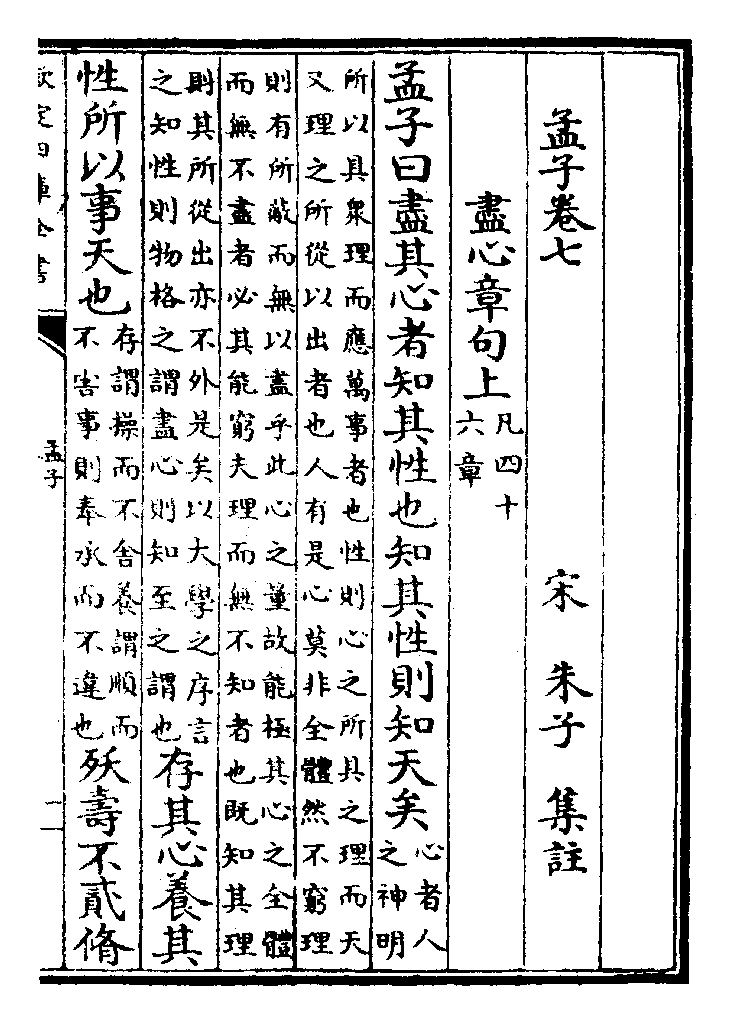 孟子卷七　宋　朱子　集註
盡心章句上
凡四十
六章
孟子曰盡其心者知其性也知其性則知天矣
心者人
之神明
所以具衆理而應萬事者也性則心之所具之理而天
又理之所從以出者也人有是心莫非全體然不窮理
則有所蔽而無以盡乎此心之量故能極其心之全體
而無不盡者必其能窮夫理而無不知者也既知其理
則其所從出亦不外是矣以大學之序言
之知性則物格之謂盡心則知至之謂也
存其心養其
性所以事天也
存謂操而不舍養謂順而
不害事則奉承而不違也
殀壽不貳脩
欽定四庫全書
孟子